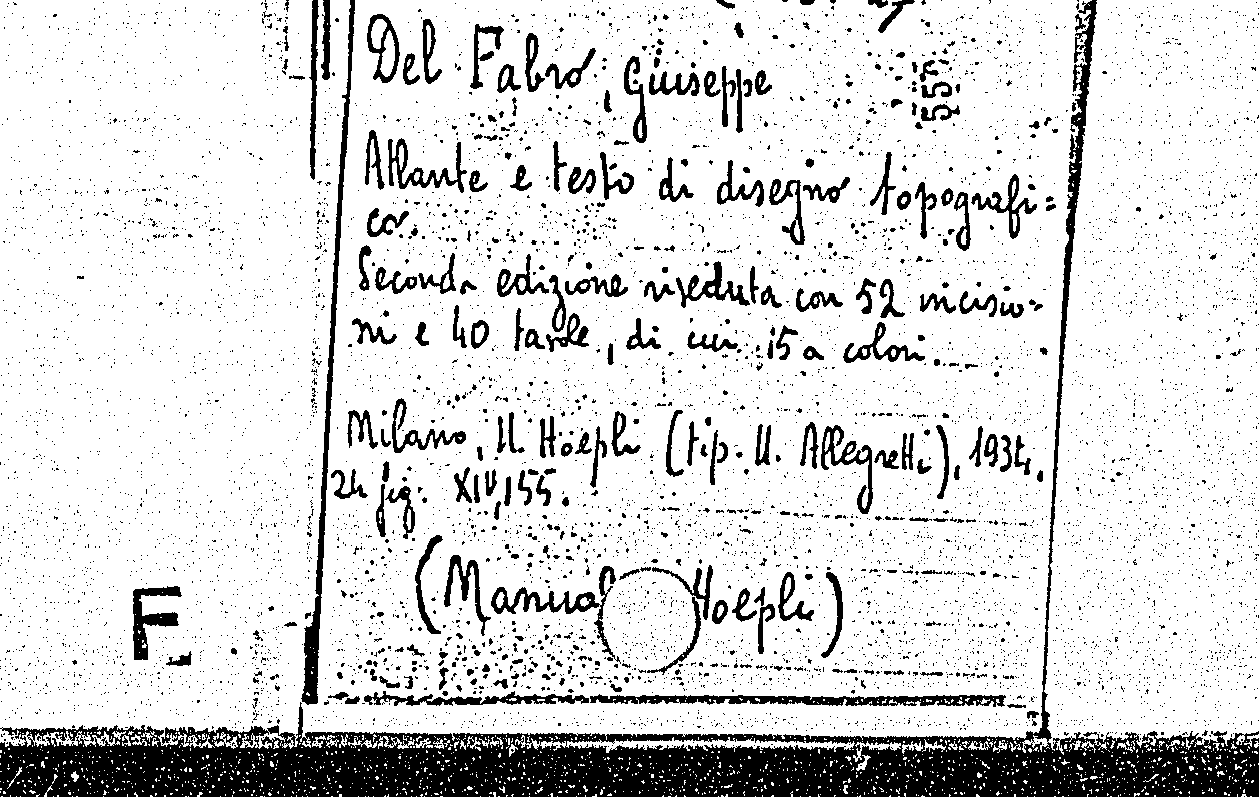 Del Fabro, Giuseppe
557
Atlante e testo di disegno topografi=
co.
Seconda edizione riveduta con 52 incisio-
ni e 40 tavole, di cui 15 a colori.
Milano, U. Hoepli (tip. U. Allegretti), 1934.
24 fig. XIV, 155.
(Manual Hoepli)
F